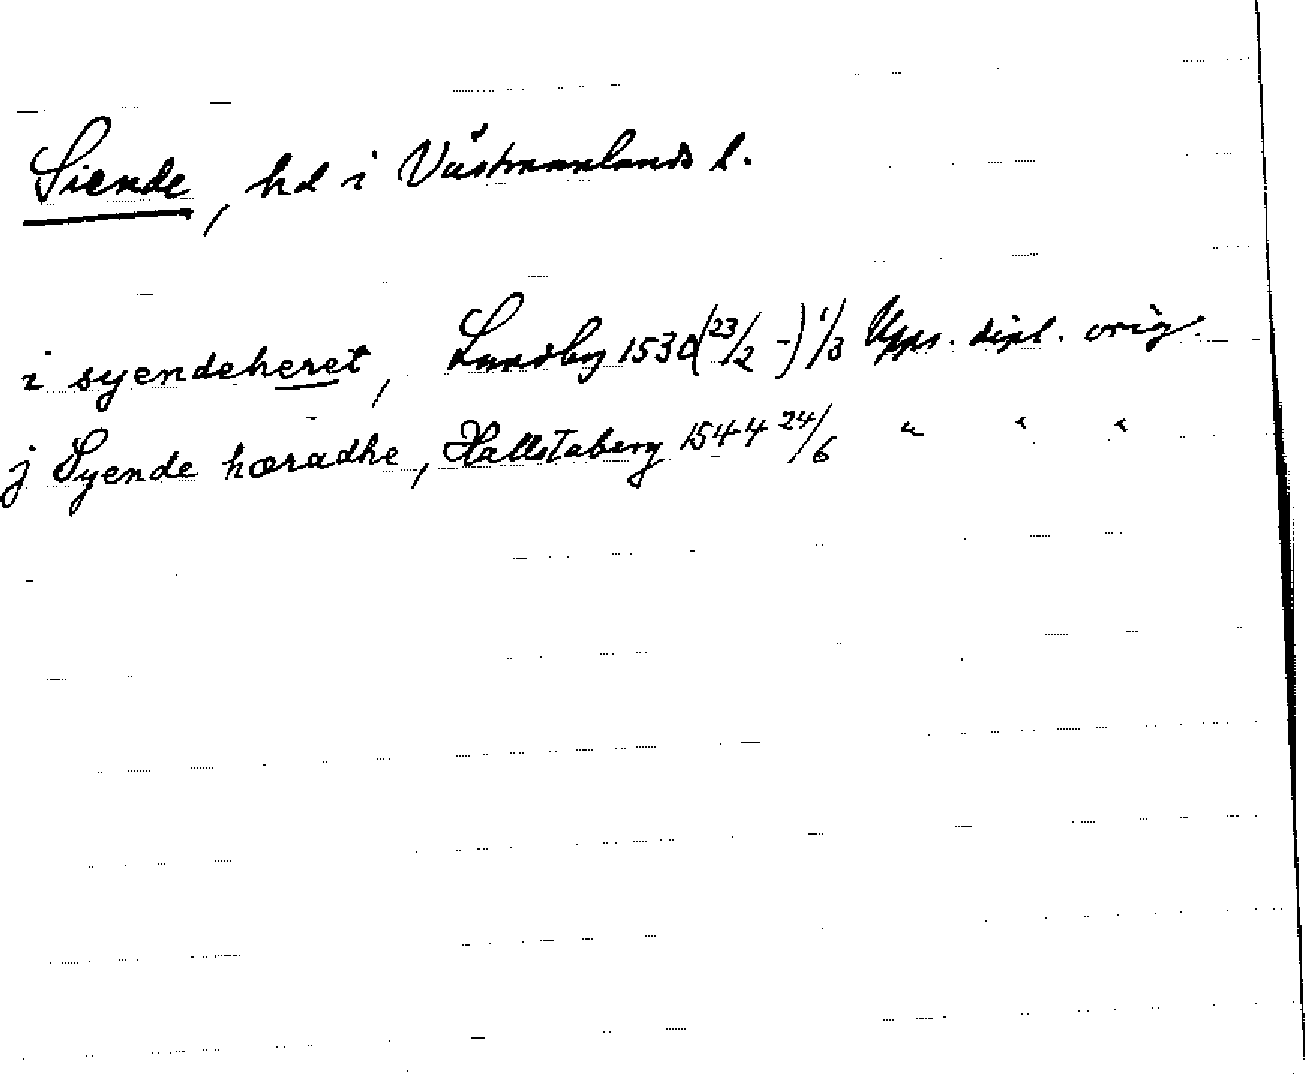 Siende, hd i Västmanlands l.
i syendeheret, Lundby 1530 (23/2 -) 1/3 Upps. dipl. orig.
j Syende hæradhe, Hallstaberg 1544 24/6 " " "